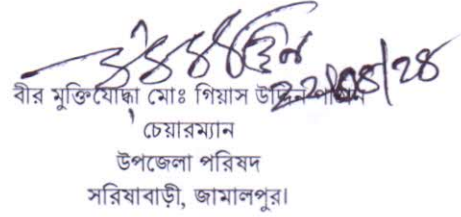 ২২/০৪/২৪
বীর মুক্তিযোদ্ধা মোঃ গিয়াস উদ্দিন পাঠান
চেয়ারম্যান
উপজেলা পরিষদ
সরিষাবাড়ী, জামালপুর।